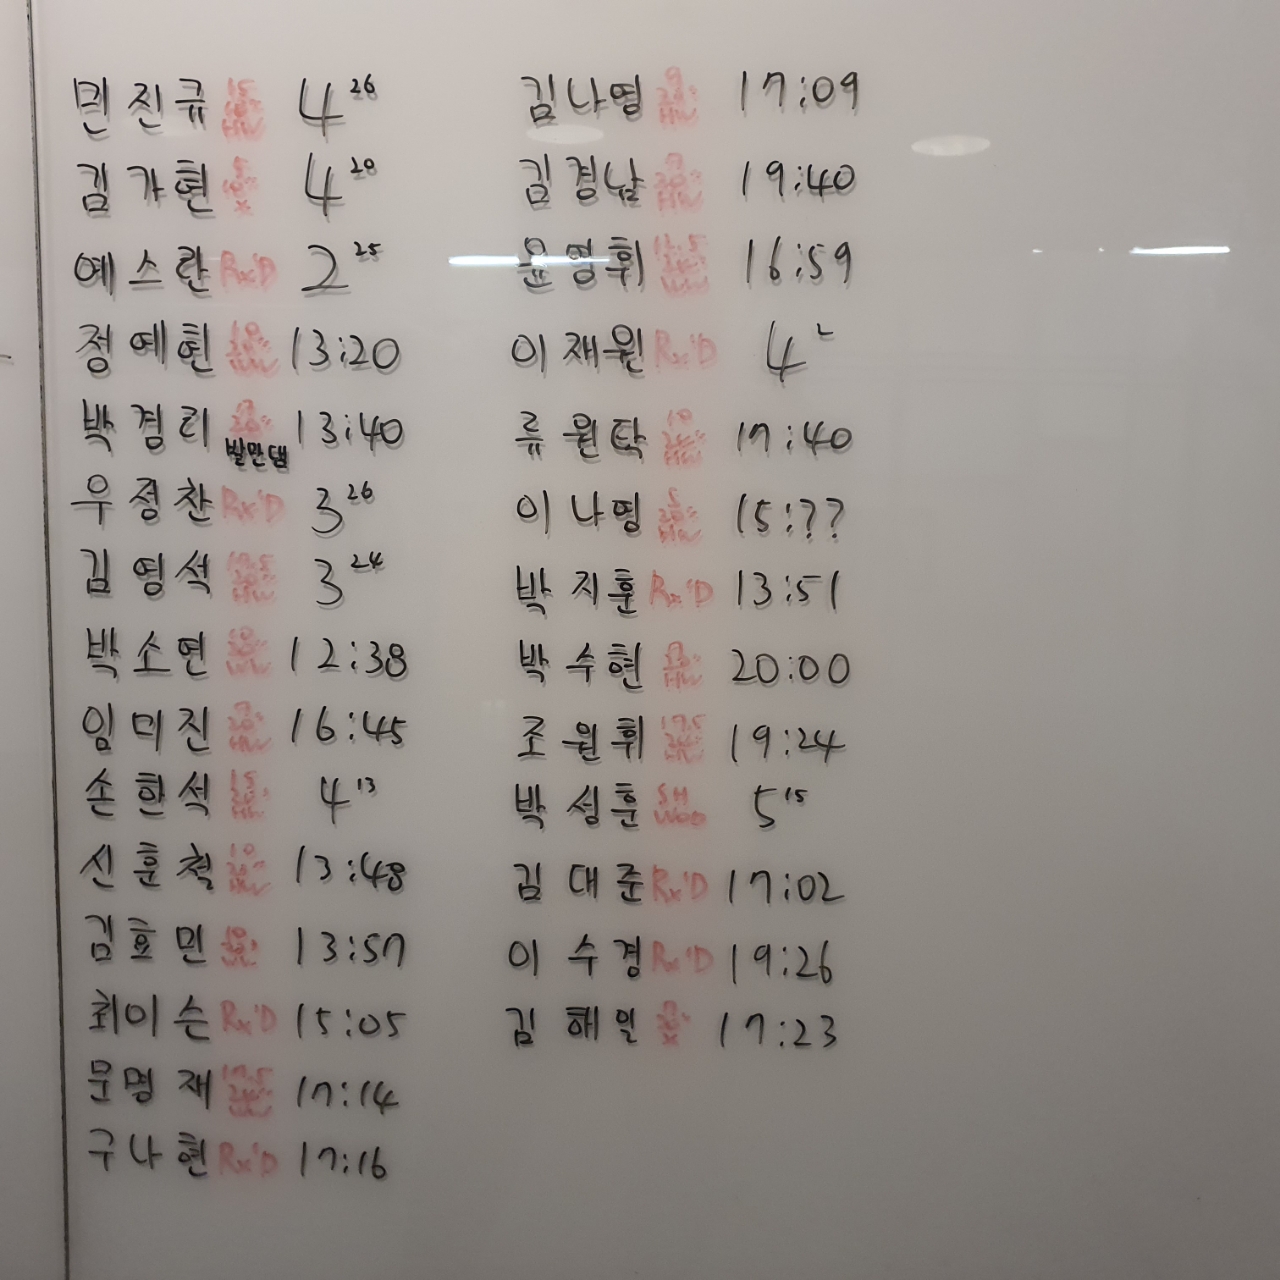 민진규 4 26
김가현 4 20
예스란 Rx'D 2 25
정예헌 13:20
박경리 13:40
발만댐
우정찬 Rx'D 3 26
김영석 3 24
박소연 12:38
임미진 16:45
손한석 4 13
신훈철 13:48
김효민 13:57
최이슨 Rx'D 15:05
문명재 17:14
구나현 Rx'D 17:16
김나영 17:09
김경남 19:40
윤영휘 16:59
이재원 Rx'D 4 2
류원탁 17:40
이나영 15:??
박지훈 Rx'D 13:51
박수현 20:00
조원휘 17.5 19:24
박성훈 SH WOD 5 15
김대준 Rx'D 17:02
이수경 Rx'D 19:26
김해일 17:23